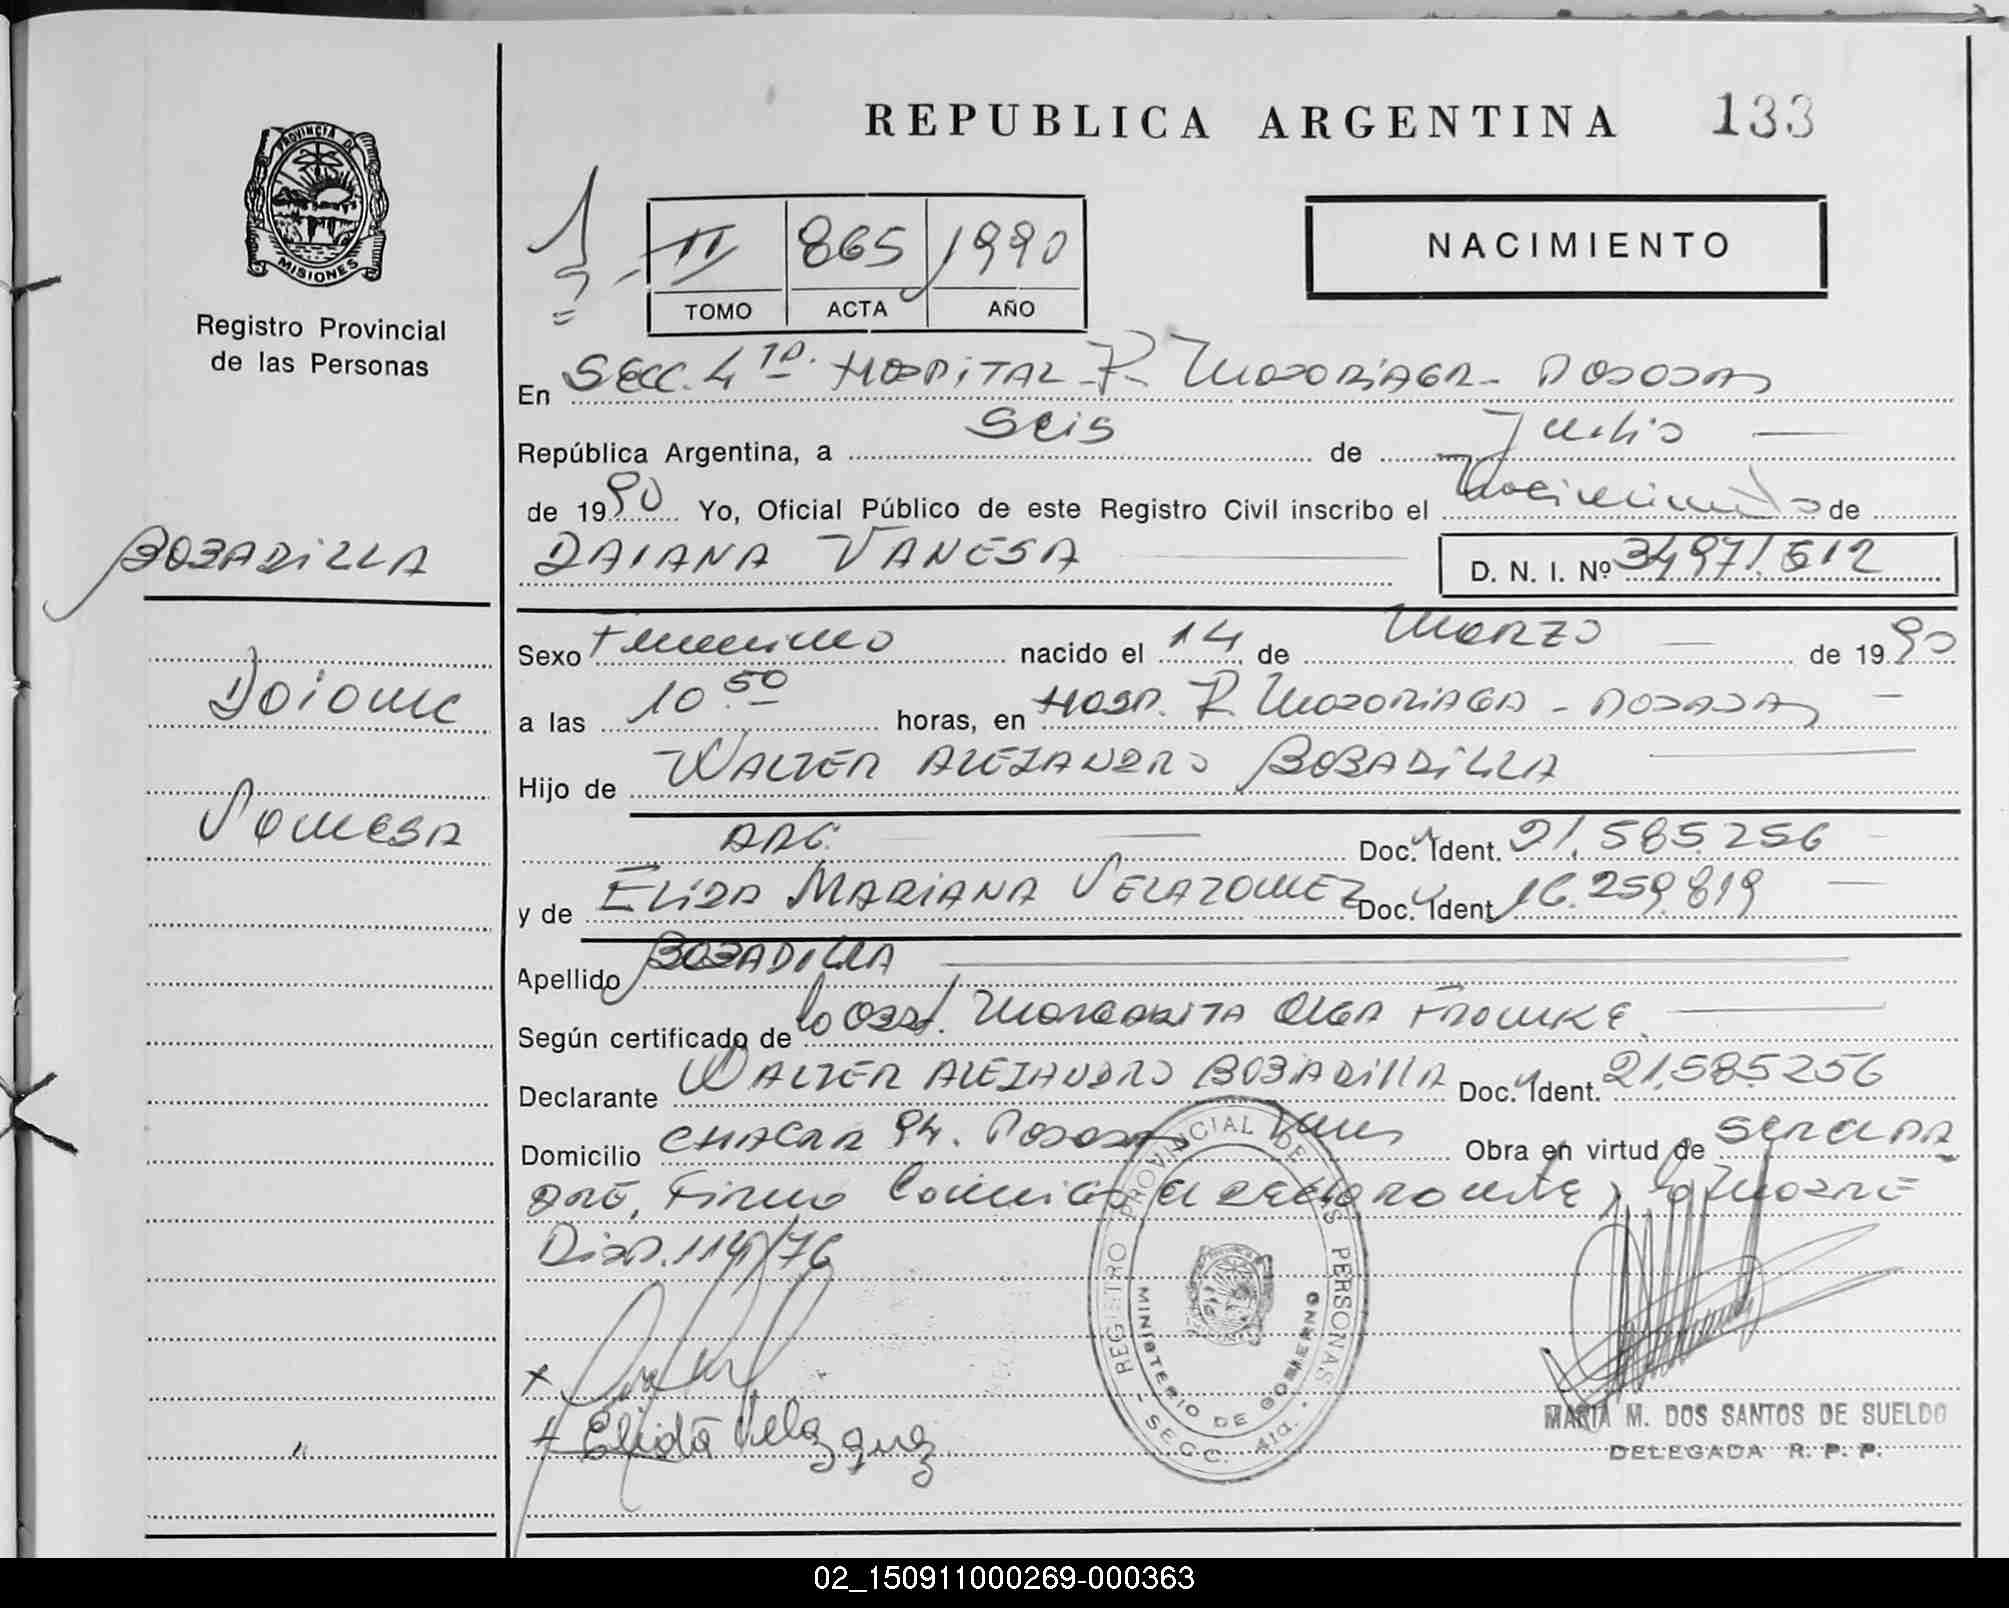 REPUBLICA ARGENTINA 133
PROVINCIA DE
MISIONES
Registro Provincial
de las Personas
II 865 1990
TOMO ACTA AÑO
NACIMIENTO
En SECC. 4ta. HOSPITAL R. MADARIAGA - POSADAS
República Argentina, a Seis de Julio
de 1990 Yo, Oficial Público de este Registro Civil inscribo el Nacimiento de
BOBADILLA
DAIANA VANESA D. N. I. Nº 34971.612
Sexo Femenino nacido el 14 de MARZO de 1990
Daiana
a las 10.50 horas, en HOSP. R. MADARIAGA - POSADAS
Hijo de WALTER ALEJANDRO BOBADILLA
Vanesa
ARG. Doc. Ident. 21.585.256
y de ELIDA MARIANA VELAZQUEZ Doc. Ident. 16.259.819
Apellido BOBADILLA
Según certificado de la Obst. MARGARITA OLGA FRANKE
Declarante WALTER ALEJANDRO BOBADILLA Doc. Ident. 21.585.256
Domicilio CHACRA 94. POSADAS Mnes Obra en virtud de SER EL PA
DRE, Firma Conmigo el declarante y la MADRE
Disp. 114/76
REGISTRO PROVINCIAL DE LAS PERSONAS
MINISTERIO DE GOBIERNO
- SECC. 4ta. -
Elida Velazquez
MARIA M. DOS SANTOS DE SUELDO
DELEGADA R. P. P.
02_150911000269-000363